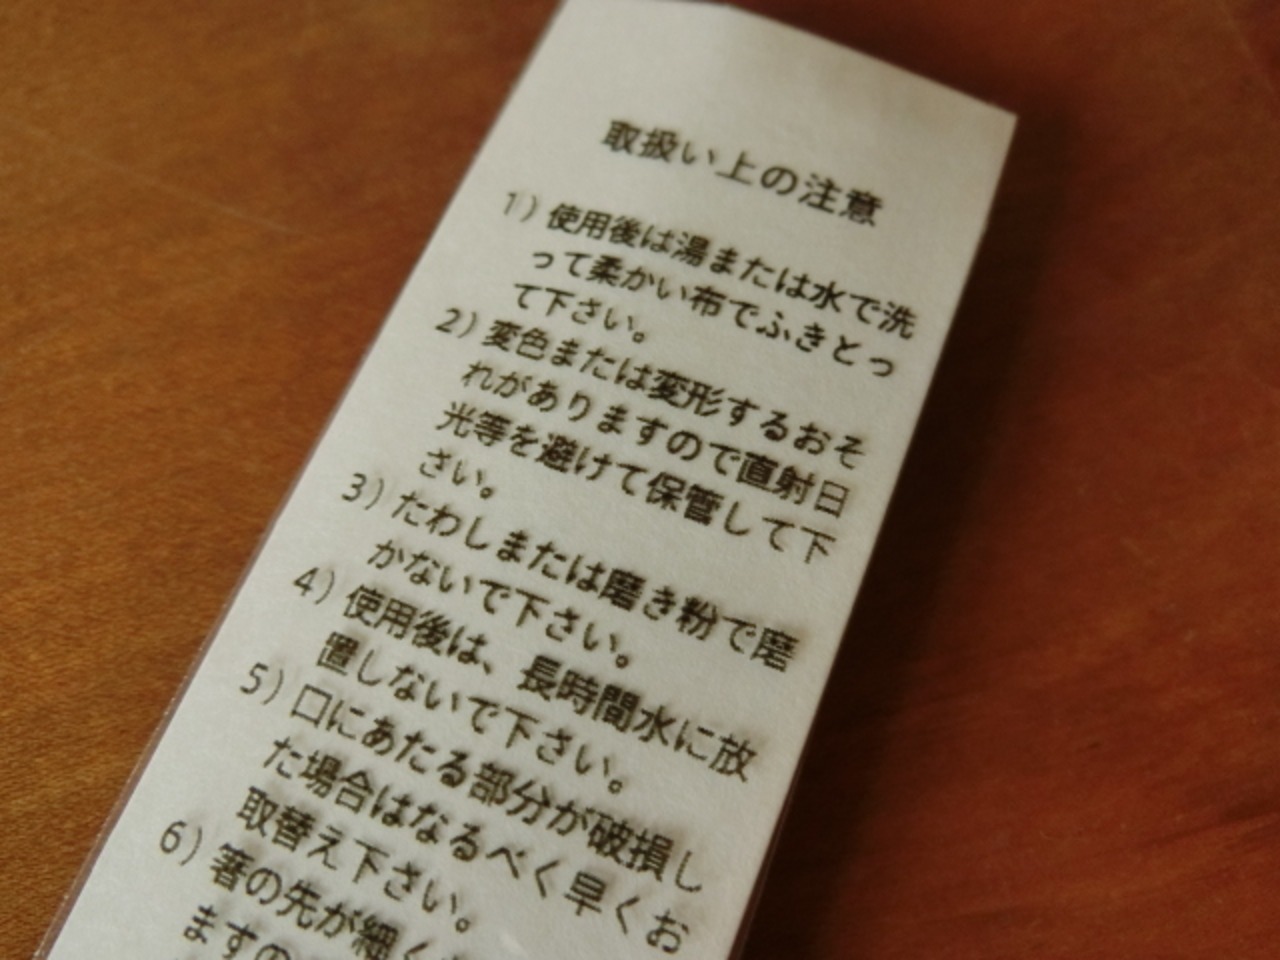 取扱い上の注意
1）使用後は湯または水で洗
って柔かい布でふきとっ
て下さい。
2）変色または変形するおそ
れがありますので直射日
光等を避けて保管して下
さい。
3）たわしまたは磨き粉で磨
かないで下さい。
4）使用後は、長時間水に放
置しないで下さい。
5）口にあたる部分が破損し
た場合はなるべく早くお
取替え下さい。
6）箸の先が細く
ますの